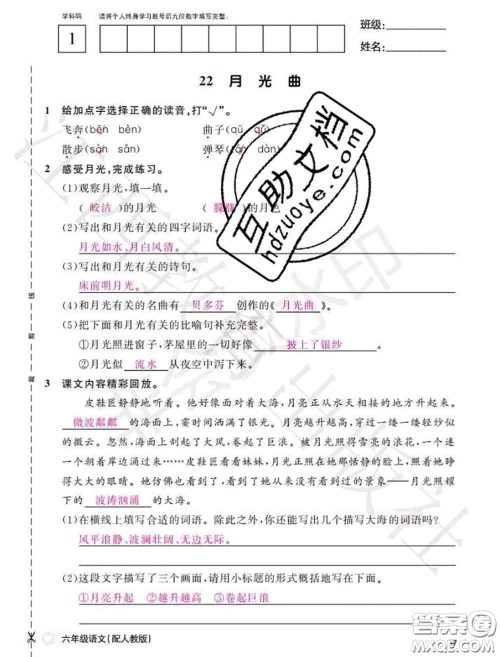 学科码 请将个人终身学习账号后九位数字填写完整。
1
班级:
姓名:
22 月光曲
1 给加点字选择正确的读音,打“√”。
飞奔(bēn bèn) 曲子(qū qǔ)
散步(sǎn sàn) 弹琴
2 感受月光,完成练习。
(1)观察月光,填一填。
(皎洁)的月光 (朦胧)的月色
(2)写出和月光有关的四字词语。
月光如水、月白风清。
(3)写出和月光有关的诗句。
床前明月光。
(4)和月光有关的名曲有 贝多芬 创作的《 月光曲 》。
(5)把下面和月光有关的比喻句补充完整。
①月光照进窗前,茅屋里的一切好像 披上了银纱 。
②月光似 流水 从夜空中泻下来。
3 课文内容精彩回放。
皮鞋匠静静地听着。他好像面对着大海,月亮正从水天相接的地方升起来。
微波粼粼 的海面上,霎时间洒满了银光。月亮越升越高,穿过一缕一缕轻纱似
的微云。忽然,海面上刮起了大风,卷起了巨浪。被月光照得雪亮的浪花,一个连
一个朝着岸边涌过来……皮鞋匠看看妹妹,月光正照在她那恬静的脸上,照着她睁
得大大的眼睛。她仿佛也看到了,看到了她从来没有看到过的景象——月光照耀
下的 波涛汹涌 的大海。
(1)在横线上填写合适的词语。除此之外,你还能写出几个描写大海的词语吗?
风平浪静、波澜壮阔、无边无际。
(2)这段文字描写了三个画面,请用小标题的形式概括地写下来。
①月亮升起 ②越升越高 ③卷起巨浪
六年级语文(配人教版)
互助文档
hdzuoye.com